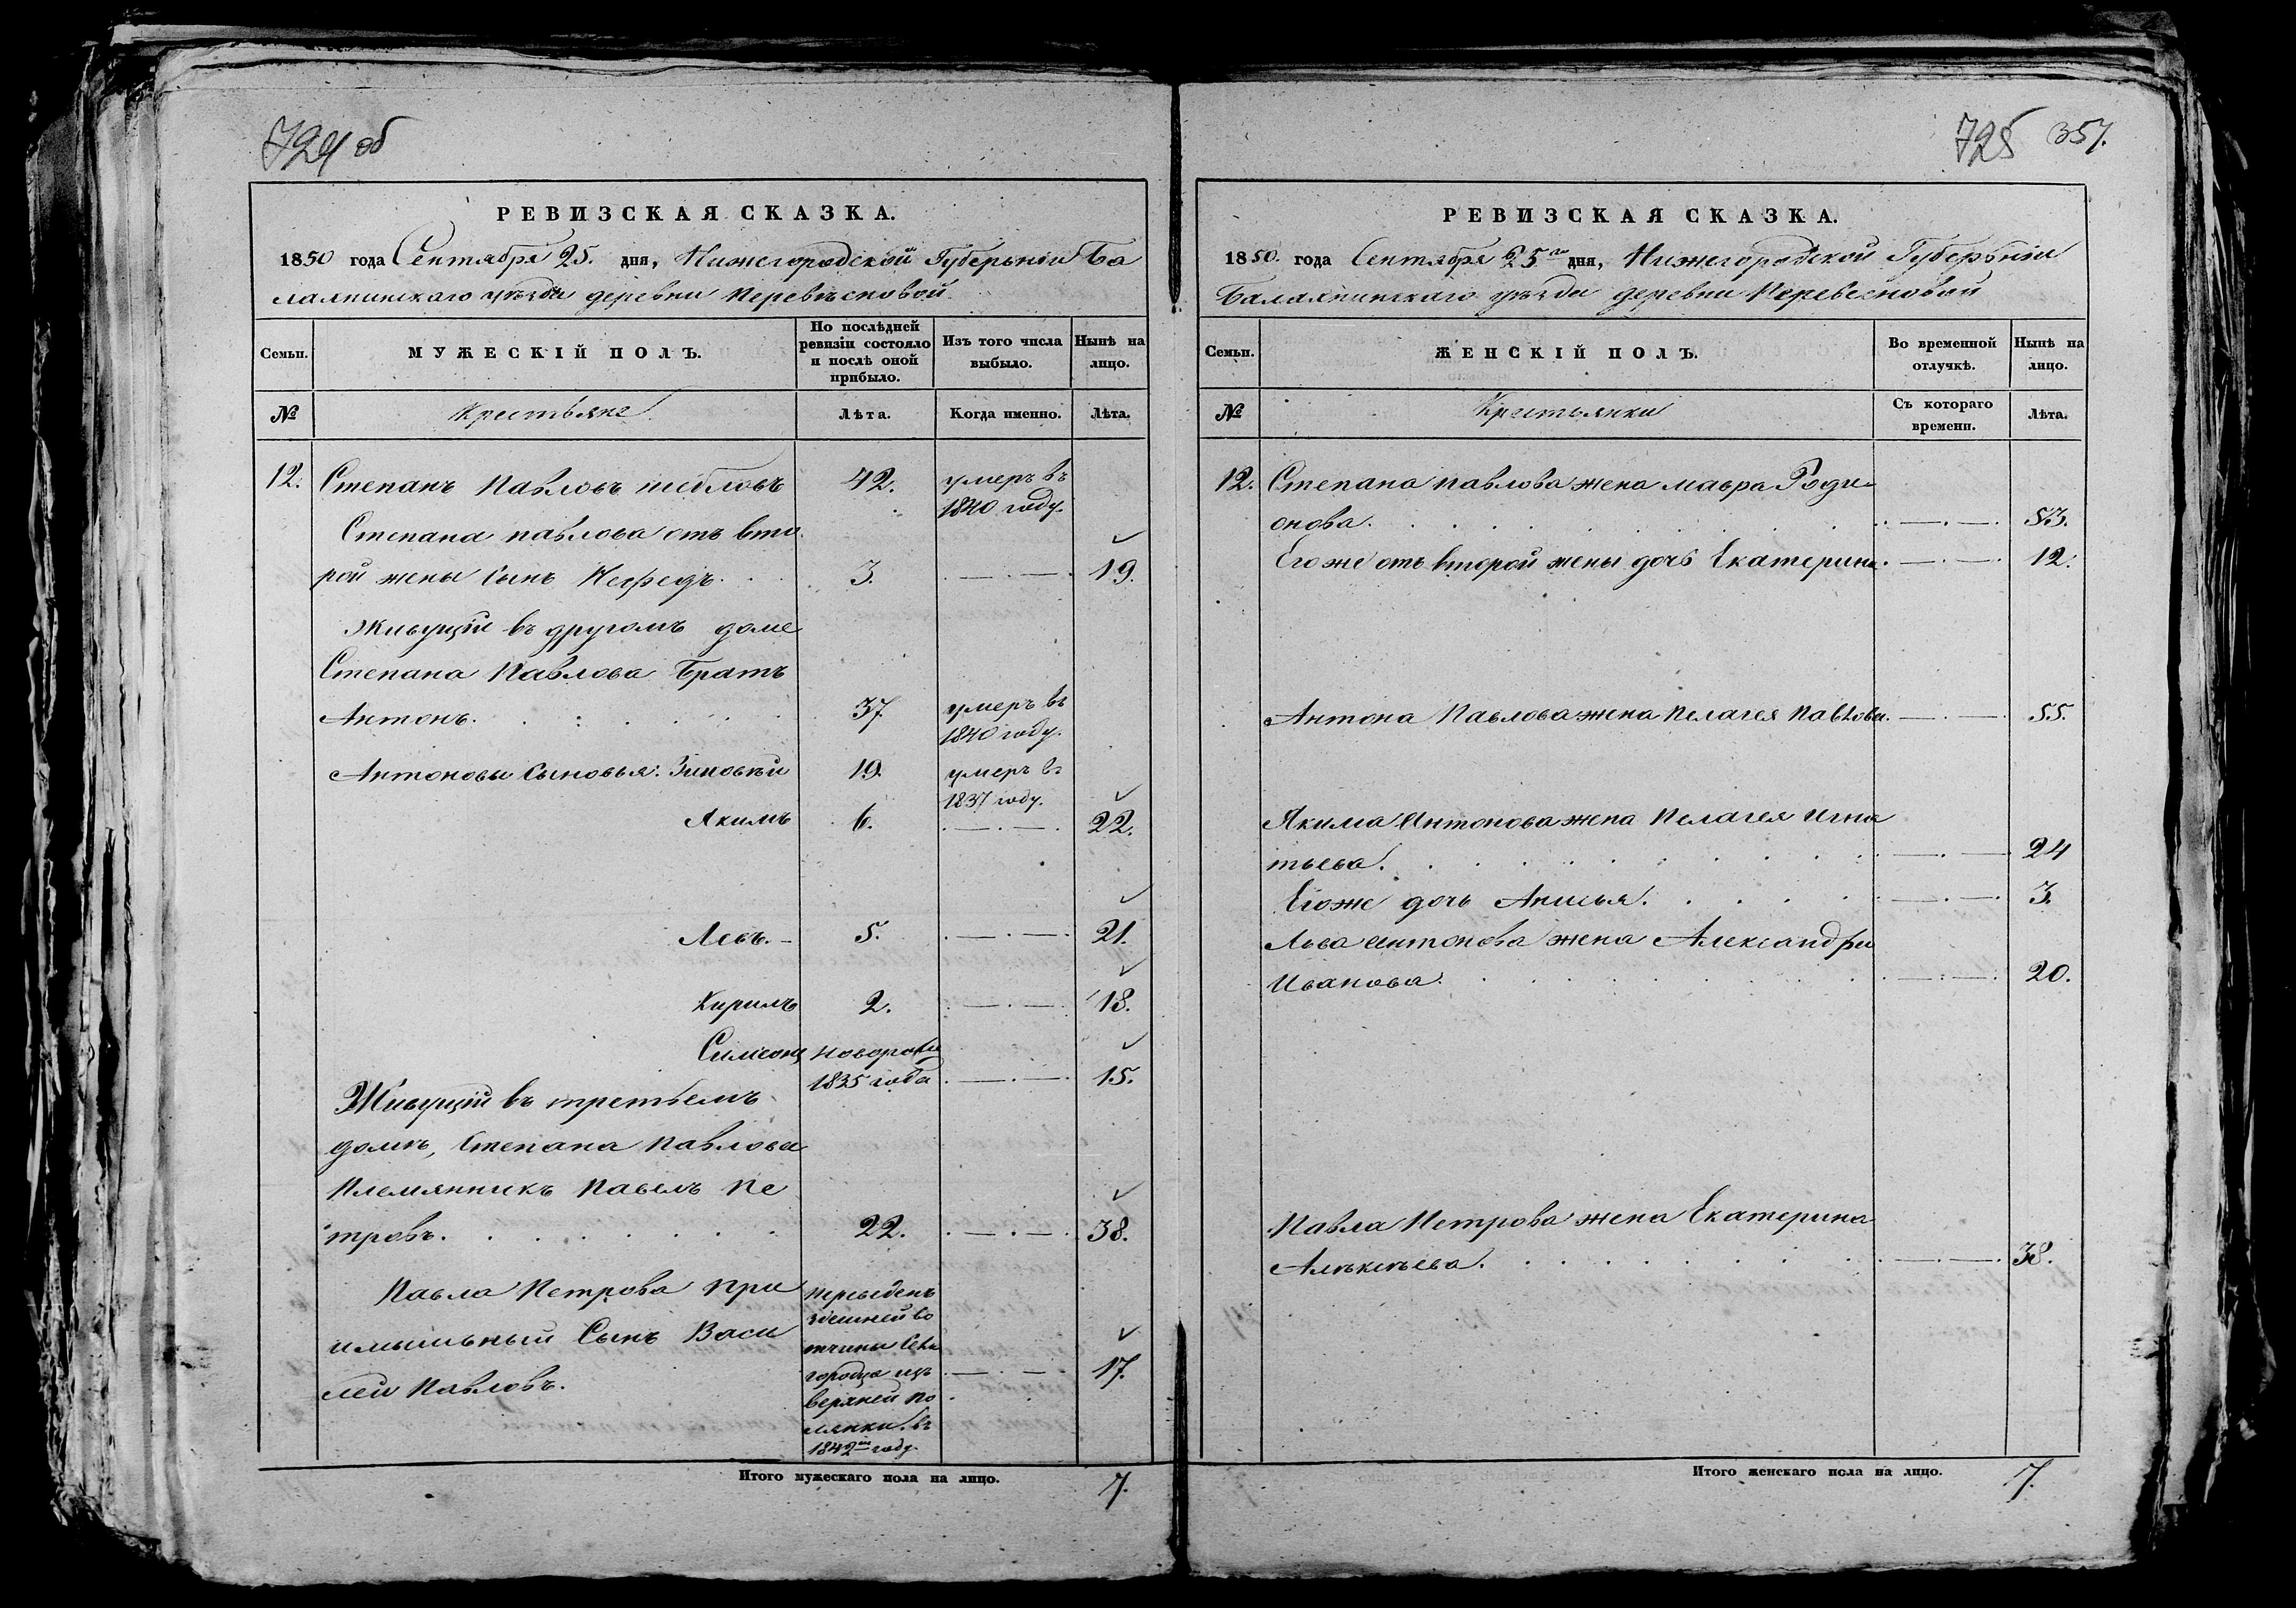 724 об
РЕВИЗСКАЯ СКАЗКА.
1850 года Сентября 25. дня, Нижегородской Губернiи Ба
лахнинскаго уѣзда деревни Перевѣсновой
Семьи.
МУЖЕСКIЙ ПОЛЪ.
По послѣдней ревизiи состояло и послѣ оной прибыло.
Изъ того числа выбыло.
Нынѣ на лицо.
№
Крестьяне
Лѣта.
Когда именно.
Лѣта.
12. Степанъ Павловъ 42. умеръ въ
1840 году.
Степана павлова отъ вто
рой жены Сынъ Нефедъ. 3. 19.
Живущiй въ другомъ доме
Степана Павлова Братъ
Антонъ. 37. умеръ въ
1840 году.
Антоновы Сыновья: Зиновѣй 19. умеръ въ
1837 году.
Якимъ 6. 22.
Левъ. 5. 21.
Кирилъ 2. 18.
Симеонъ новорожде
1835 года 15.
Живущiй въ третьемъ
домѣ, Степана Павлова
Племянникъ Павелъ Пе
тровъ. 22. 38.
Павла Петрова При
имышьный Сынъ Васи
лей Павловъ. 17.
переведенъ
здешней во
тчины Села
городца изъ
верхней по
лянки въ
1842м году.
Итого мужескаго пола на лицо. 7.
725 357.
РЕВИЗСКАЯ СКАЗКА.
1850 года Сентября 25го дня, Нижегородской Губернiи
Балахнинскаго уѣзда деревни Перевесновой
Семьи.
ЖЕНСКIЙ ПОЛЪ.
Во временной отлучкѣ.
Нынѣ на лицо.
№
Крестьянки
Съ котораго времени.
Лѣта.
12. Степана павлова жена мавра Роди
онова. 53.
Его же отъ второй жены дочь Екатерина. 12.
Антона Павлова жена Пелагея Павлова. 55.
Якима Антонова жена Пелагея Игна
тьева. 24
Егоже дочь Анисья. 3.
Льва Антонова жена Александра
Иванова. 20.
Павла Петрова жена Екатерина
Алѣксѣева. 38.
Итого женскаго пола на лицо. 7.